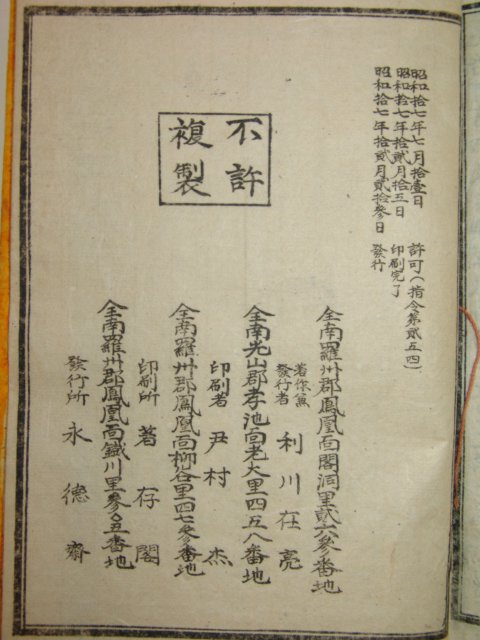 昭和拾七年七月拾壹日 許可(指令第貳五四)
昭和拾七年拾貳月拾五日 印刷完了
昭和拾七年拾貳月貳拾參日 發行
不許
複製
全南羅州郡鳳凰面閣洞里貳六參番地
著作兼發行者 利川在亮
全南光山郡孝池面老大里四五八番地
印刷者 尹村 杰
全南羅州郡鳳凰面柳谷里四七參番地
印刷所 著存閣
全南羅州郡鳳凰面鐵川里參〇五番地
發行所 永德齋